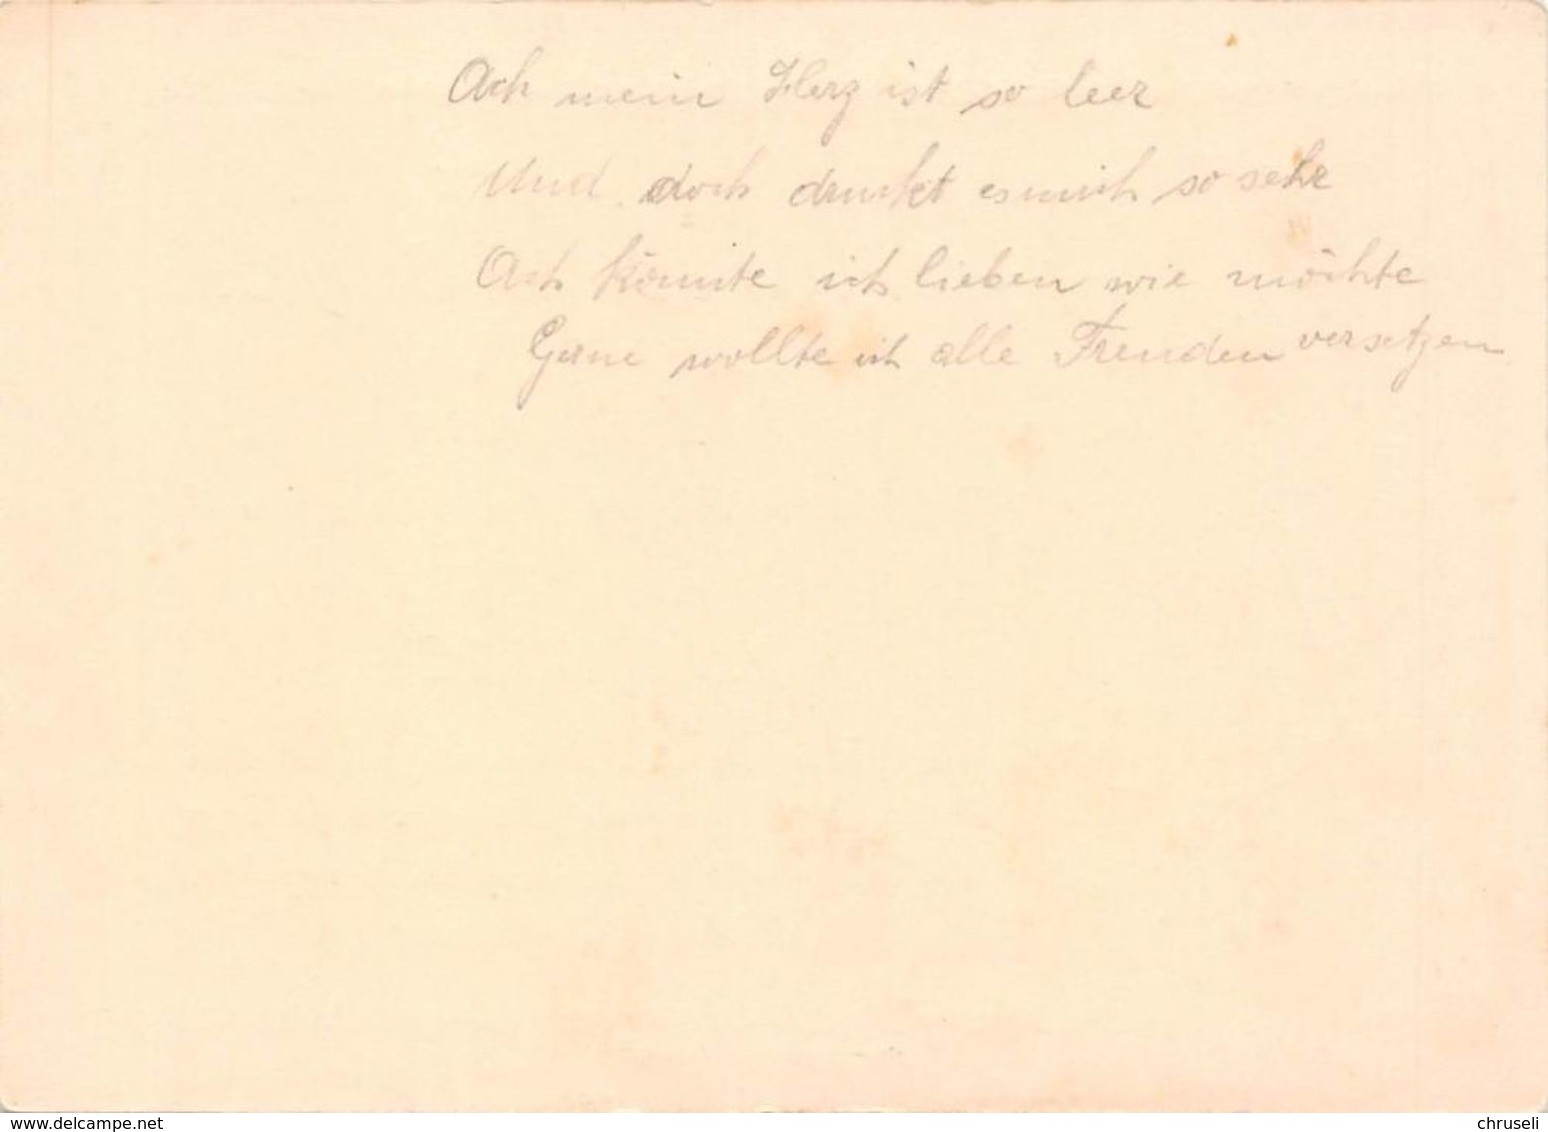 Ach mein Herz ist so leer
Und doch druckt es mich so sehr
Ach könnte ich lieben wie möchte
Gerne wollte ich alle Freuden versetzen
delcampe.net
chruseli